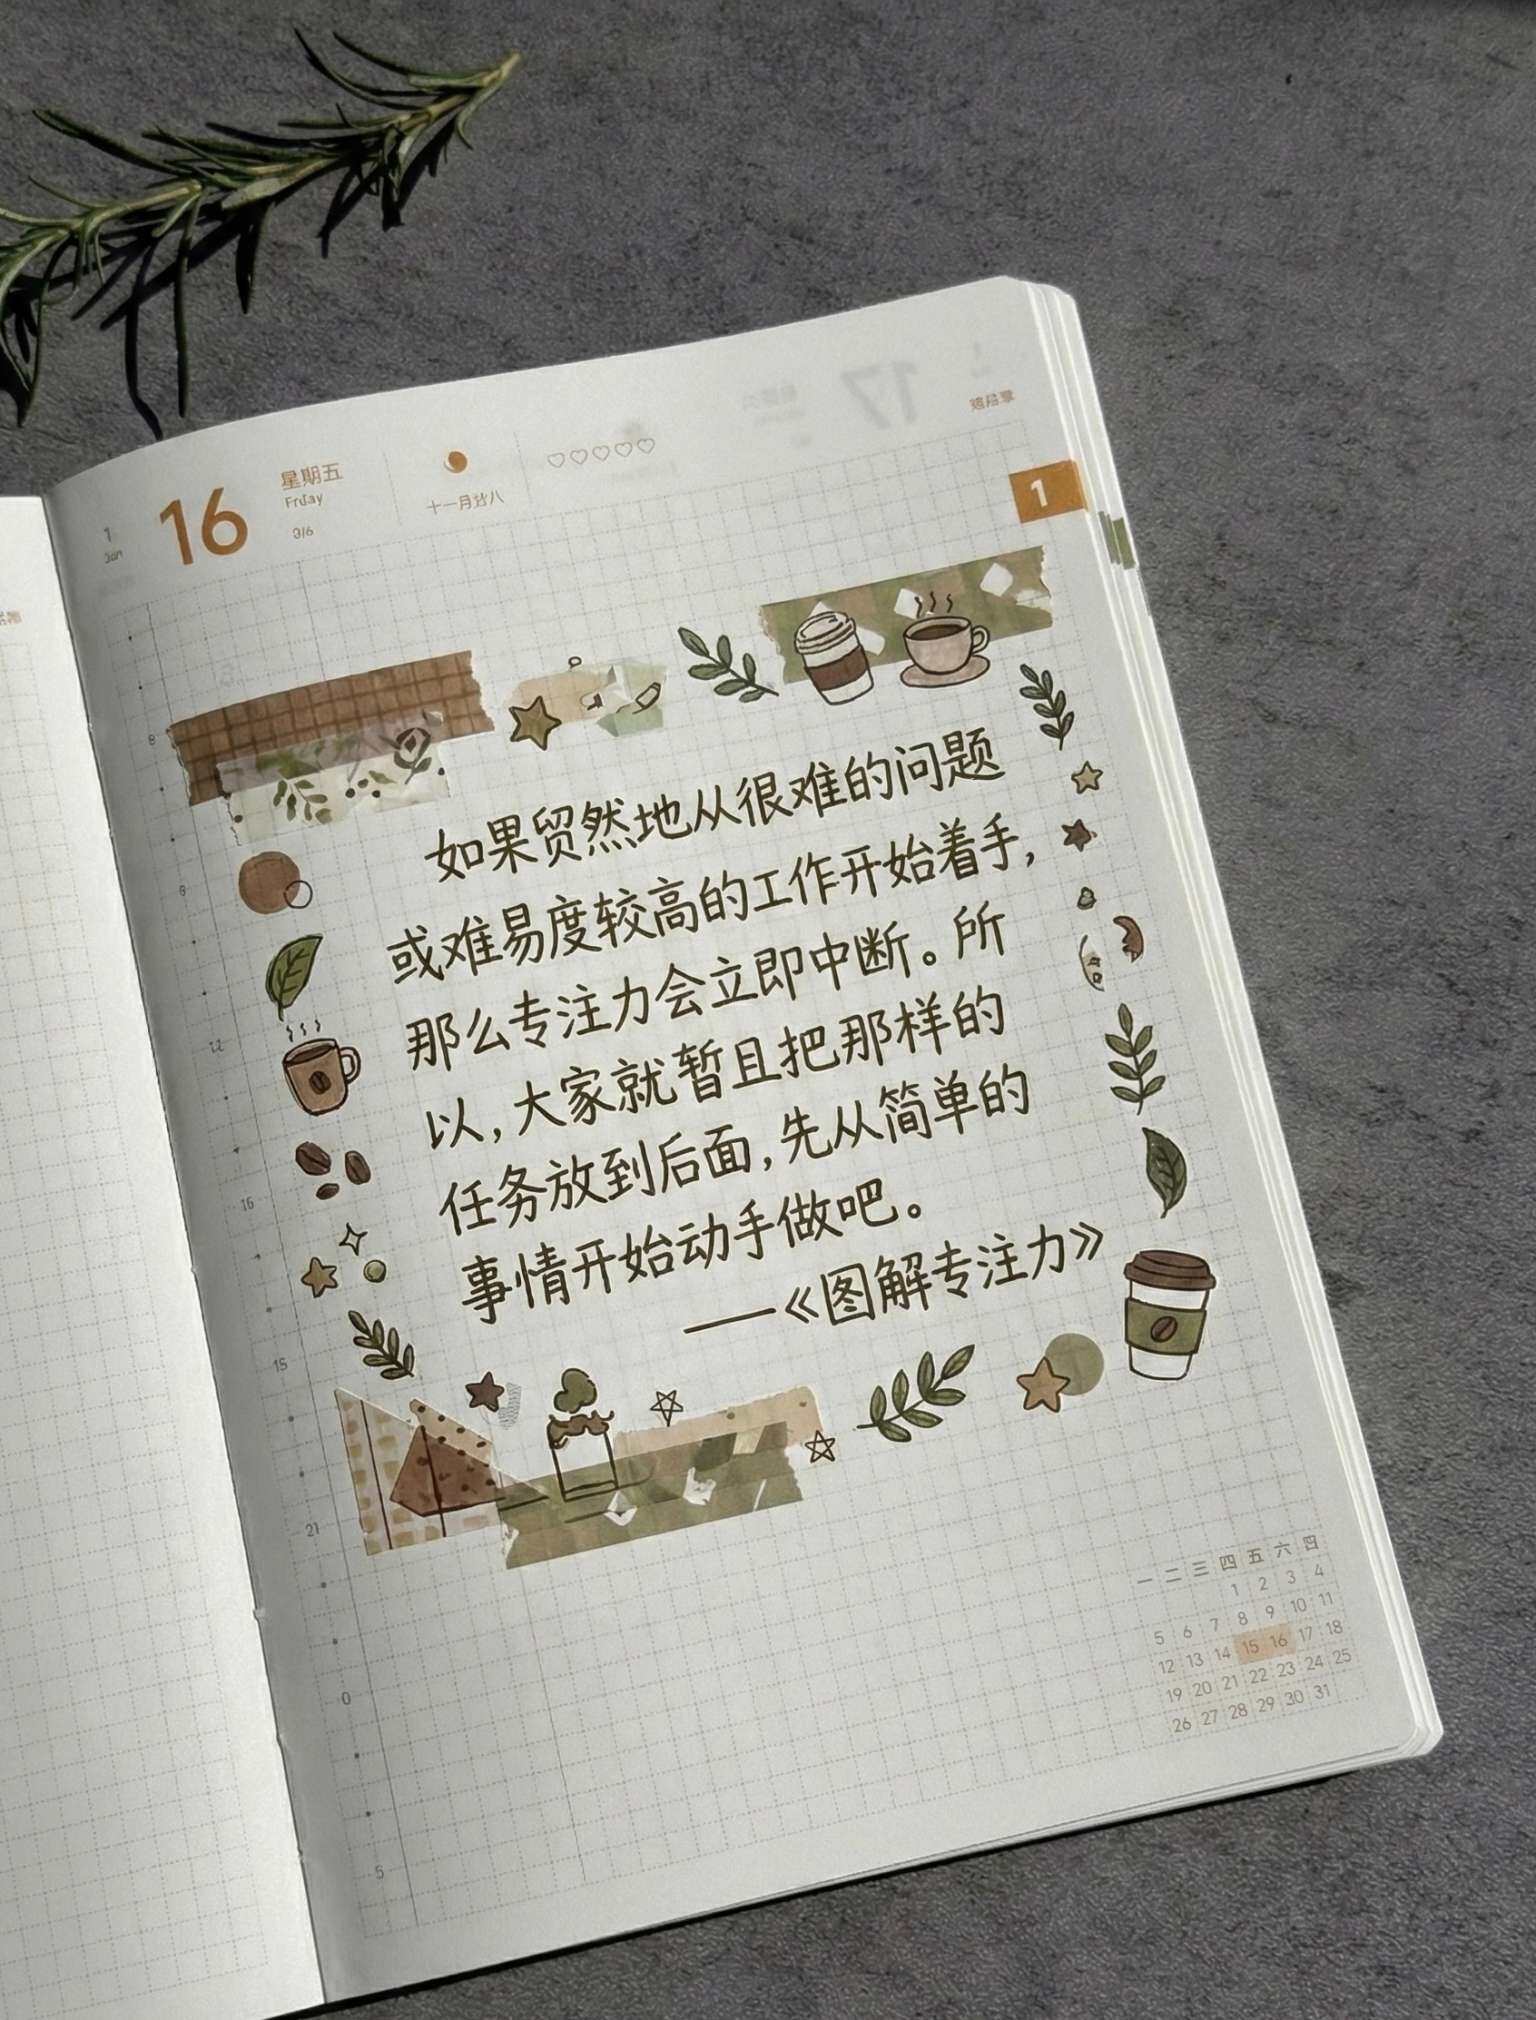 1
Jan
16
星期五
Frday
3/6
十一月廿八
17
1
8
如果贸然地从很难的问题
或难易度较高的工作开始着手,
那么专注力会立即中断。所
以,大家就暂且把那样的
任务放到后面,先从简单的
事情开始动手做吧。
——《图解专注力》
16
15
21
0
5
一 二 三 四 五 六 四
1 2 3 4
5 6 7 8 9 10 11
12 13 14 15 16 17 18
19 20 21 22 23 24 25
26 27 28 29 30 31